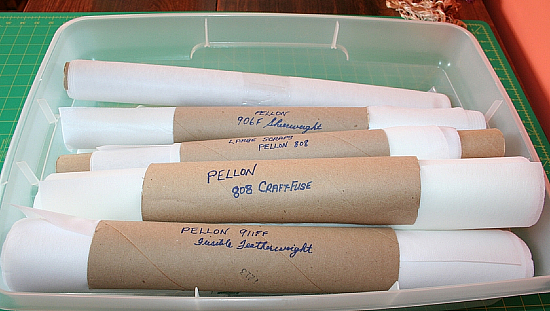 PELLON
906F Sheerweight
LARGE SCRAPS
PELLON 808
PELLON
808 CRAFT-FUSE
PELLON 911FF
Fusible Featherweight